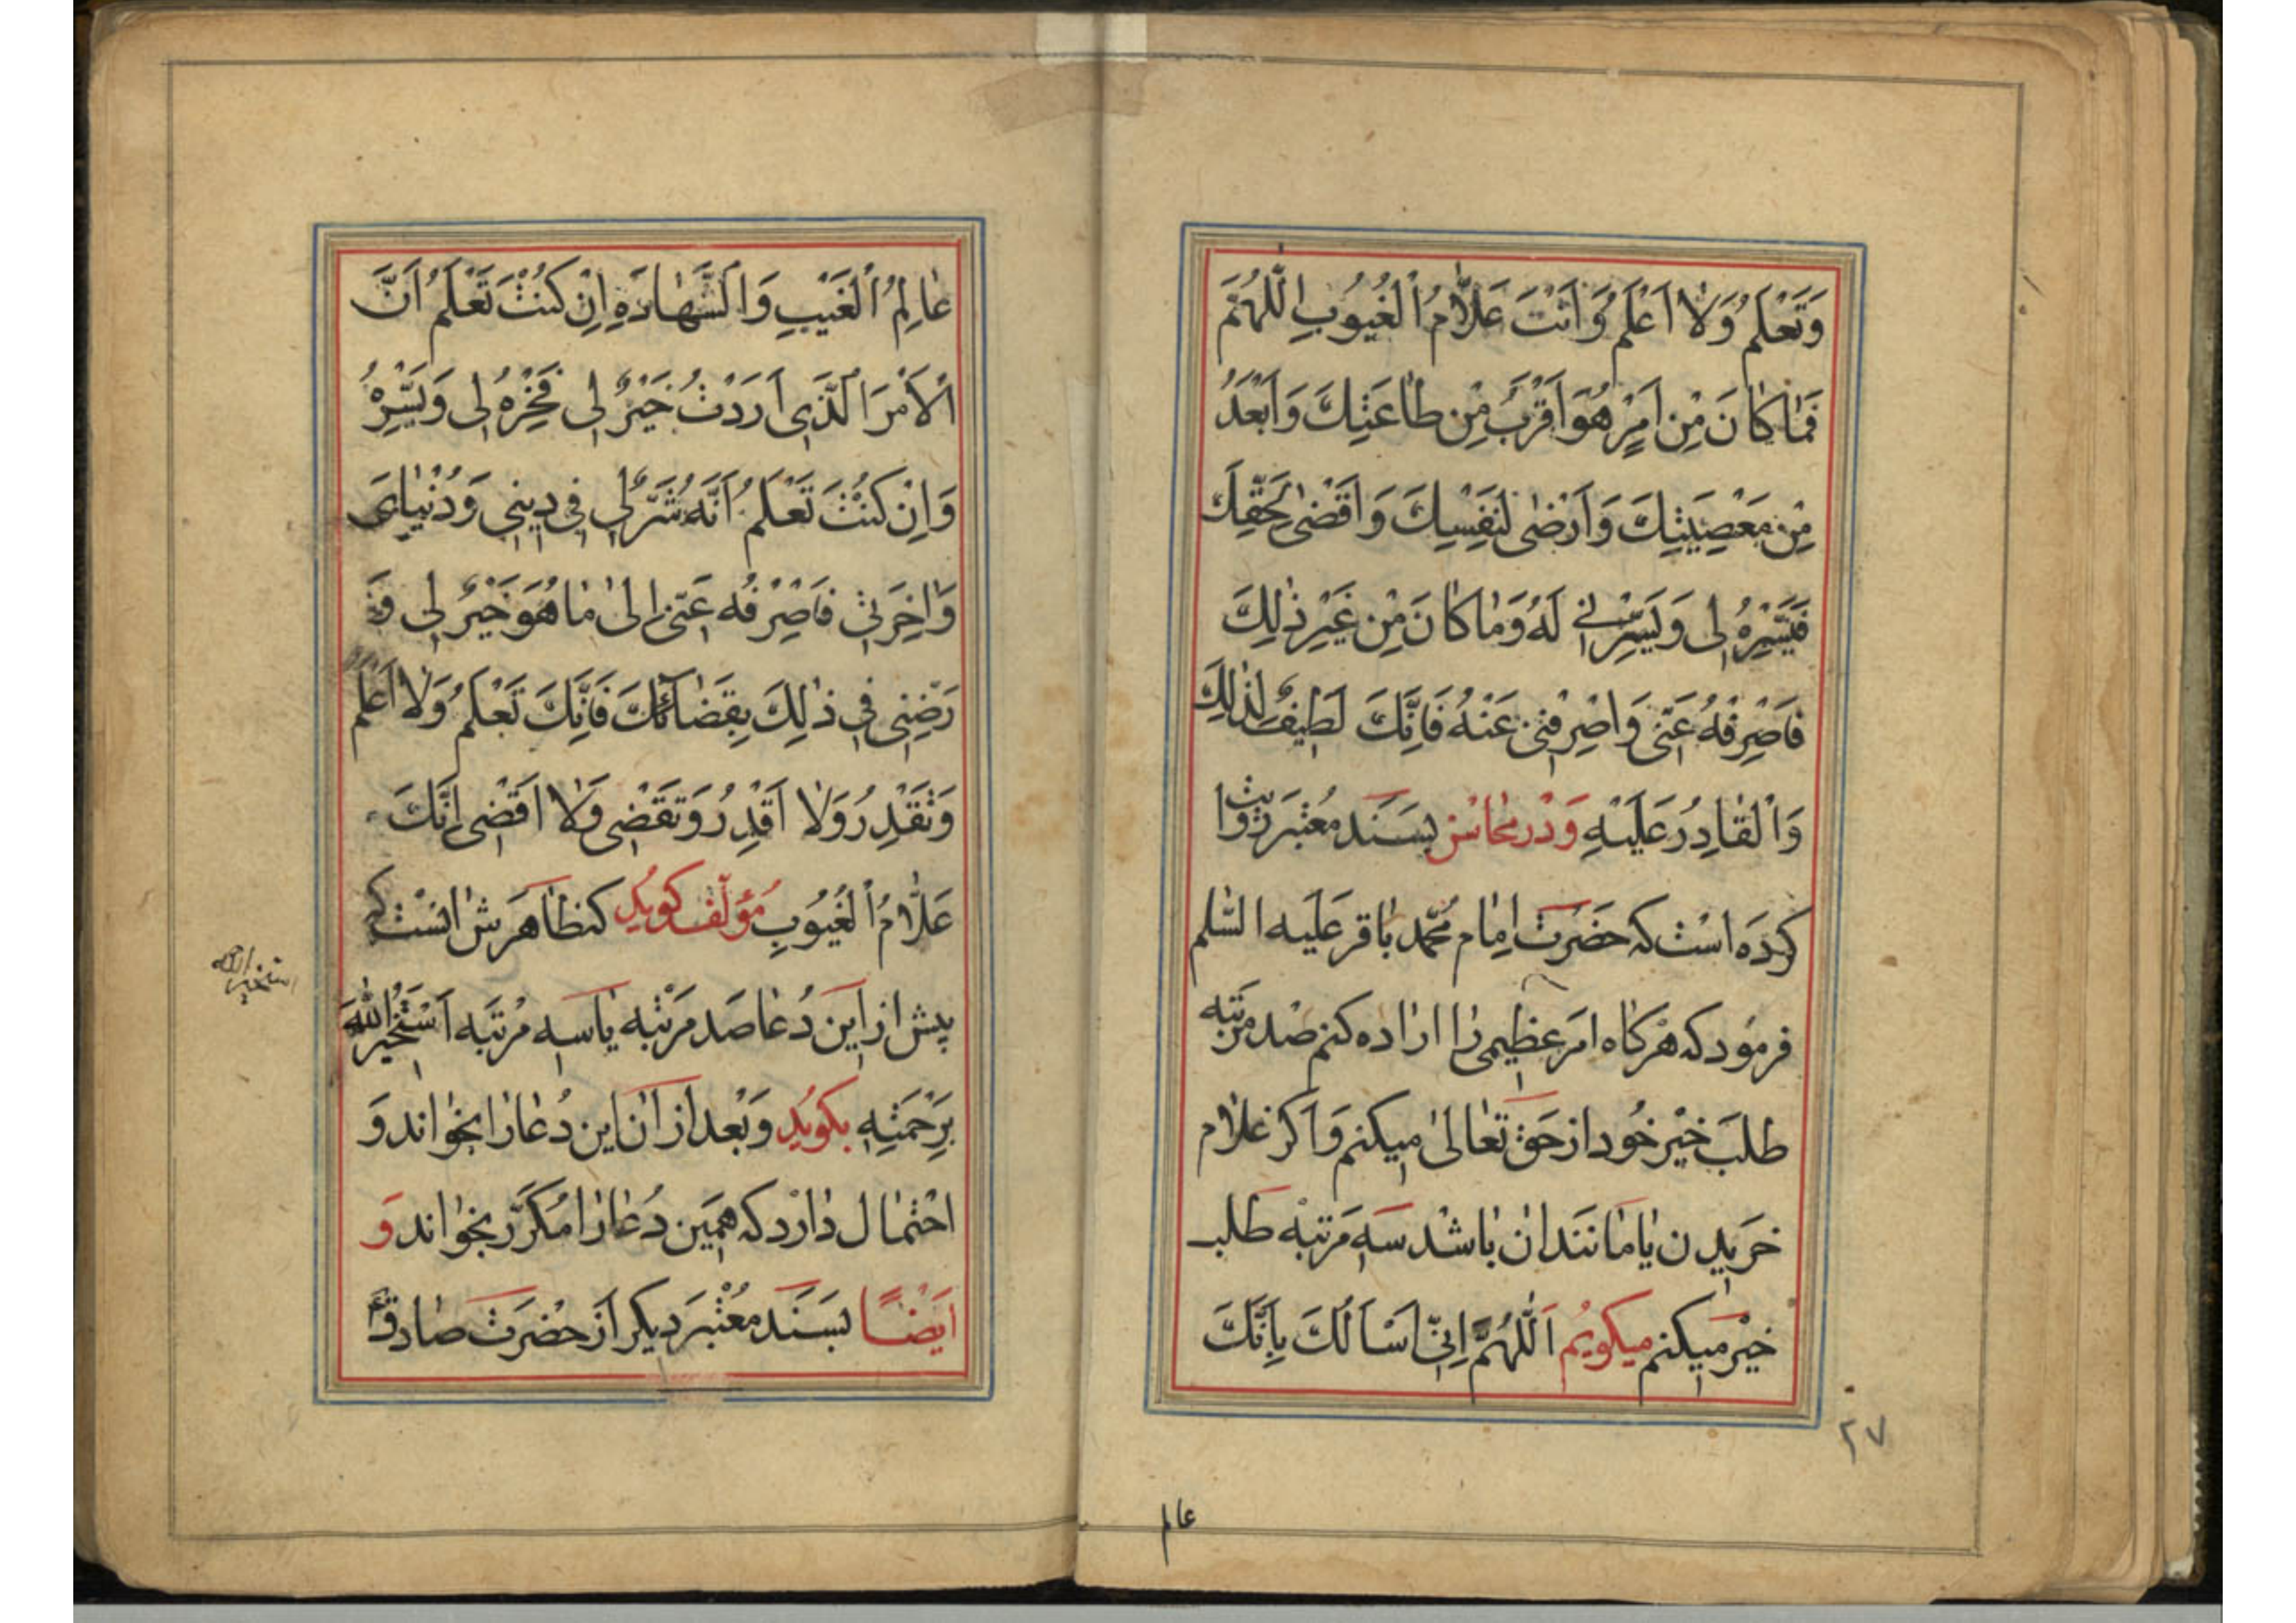 وَتَعْلَمُ وَلٰا اَعْلَمُ وَاَنْتَ عَلّٰامُ الْغُيُوبِ اللّٰهُمَّ
فَمٰا كٰانَ مِنْ اَمْرٍ هُوَ اَقْرَبُ مِنْ طٰاعَتِكَ وَاَبْعَدُ
مِنْ مَعْصِيَتِكَ وَاَرْضٰى لِنَفْسِكَ وَاَقْضٰى لِحَقِّكَ
فَيَسِّرْهُ لِى وَيَسِّرْنِى لَهُ وَمٰا كٰانَ مِنْ غَيْرِ ذٰلِكَ
فَاصْرِفْهُ عَنّى وَاصْرِفْنِى عَنْهُ فَاِنَّكَ لَطِيفٌ لِذٰلِكَ
وَالْقٰادِرُ عَلَيْهِ وَدَر مَحٰاسِن بسَنَد مُعْتَبَر رِوٰايت
كردَه است كه حَضرَت اِمٰام مُحَمّد بٰاقر عَلَيه السّلم
فرمود كه هركٰاه امر عظيمى رٰا ارٰاده كنم صد مرتبه
طلَب خَيْر خُود از حَق تَعٰالىٰ ميكنم وَاَكر غلٰام
خَريدن يٰا مٰانَند ان بٰاشد سه مَرتبَه طَلب
خيْر ميكنم ميكويُم اَللّٰهُمَّ اِنّى اَسْاَلُكَ بِاَنَّكَ
٢٧
عالم
عٰالِمُ الْغَيْبِ وَالشَّهٰادَةِ اِنْ كُنْتَ تَعْلَمُ اَنَّ
الْاَمْرَ الَّذِى اَرَدْتُ خَيْرٌ لِى فَخِرْهُ لِى وَيَسِّرْهُ
وَاِنْ كُنْتَ تَعْلَمُ اَنَّهُ شَرٌّ لِى فِى دِينِى وَدُنْيٰاىَ
وَاٰخِرَتِى فَاصْرِفْهُ عَنّى اِلىٰ مٰا هُوَ خَيْرٌ لِى وَ
رَضِّنِى فِى ذٰلِكَ بِقَضٰائِكَ فَاِنَّكَ تَعْلَمُ وَلٰا اَعْلَمُ
وَتَقْدِرُ وَلٰا اَقْدِرُ وَتَقْضِى وَلٰا اَقْضِى اِنَّكَ
عَلّٰامُ الْغُيُوبِ مُؤلّف كويُد كه ظٰاهَرش انست كه
پيش از اين دُعٰا صَد مَرْتبه يٰا سه مرْتبَه اَسْتَخيرُ اللّٰهَ
بِرَحْمَتِهِ بكويُد وَبَعْد از اٰن اين دُعٰا رٰا بخوٰاند وَ
احتمٰال دٰارد كه همَين دُعٰا رٰا مُكرَّر بخوٰاند وَ
ايَضًا بسَنَد مُعْتبَر ديكر اَز حضْرَت صٰادق ع
استخير الله